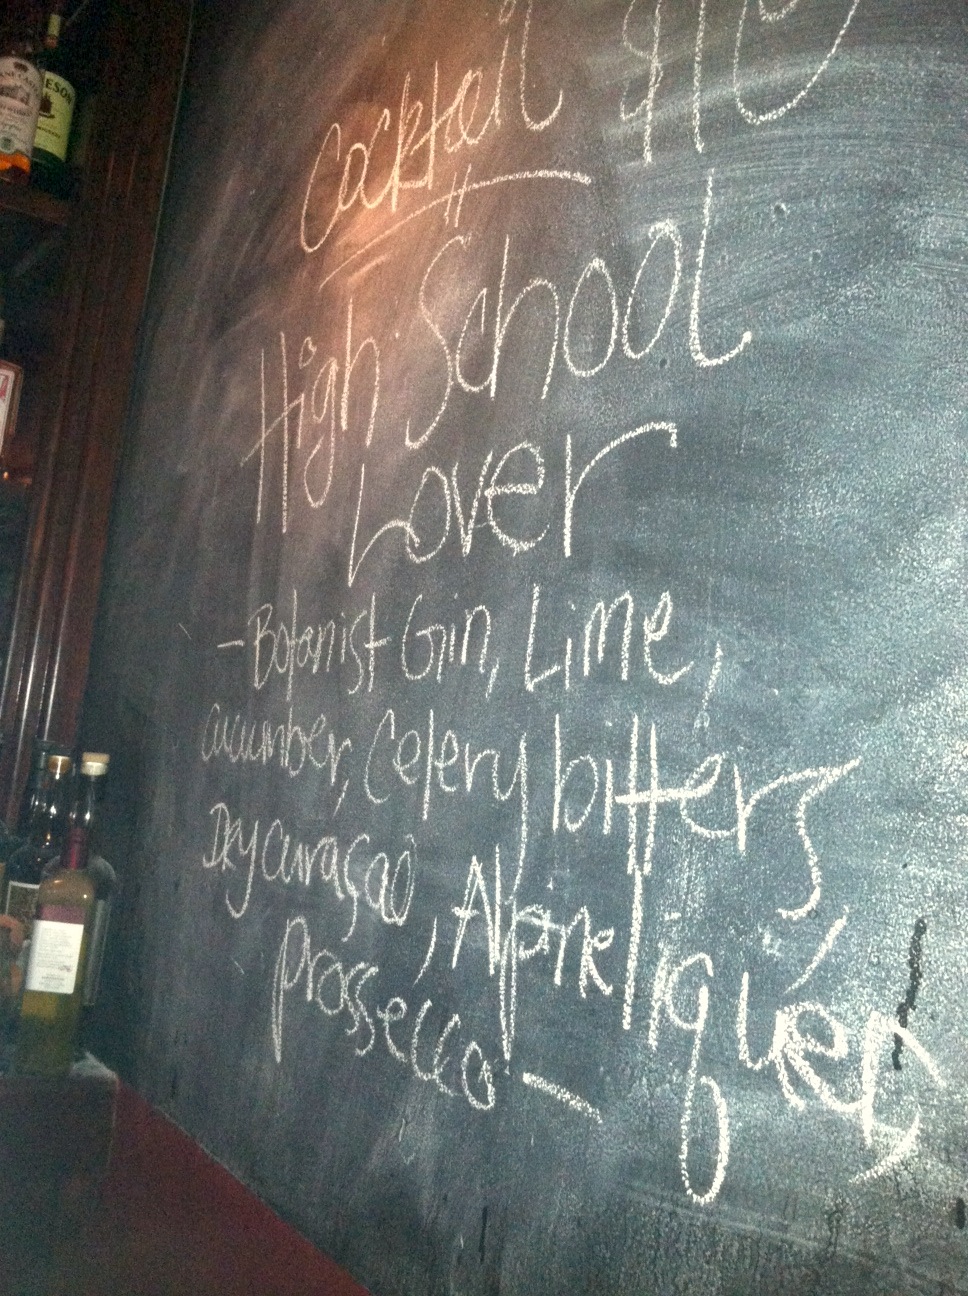 Cocktail $10
High School
Lover
- Botanist Gin, Lime,
cucumber, Celery bitters,
Dry curaçao, Alpine liquéer,
prossecco -